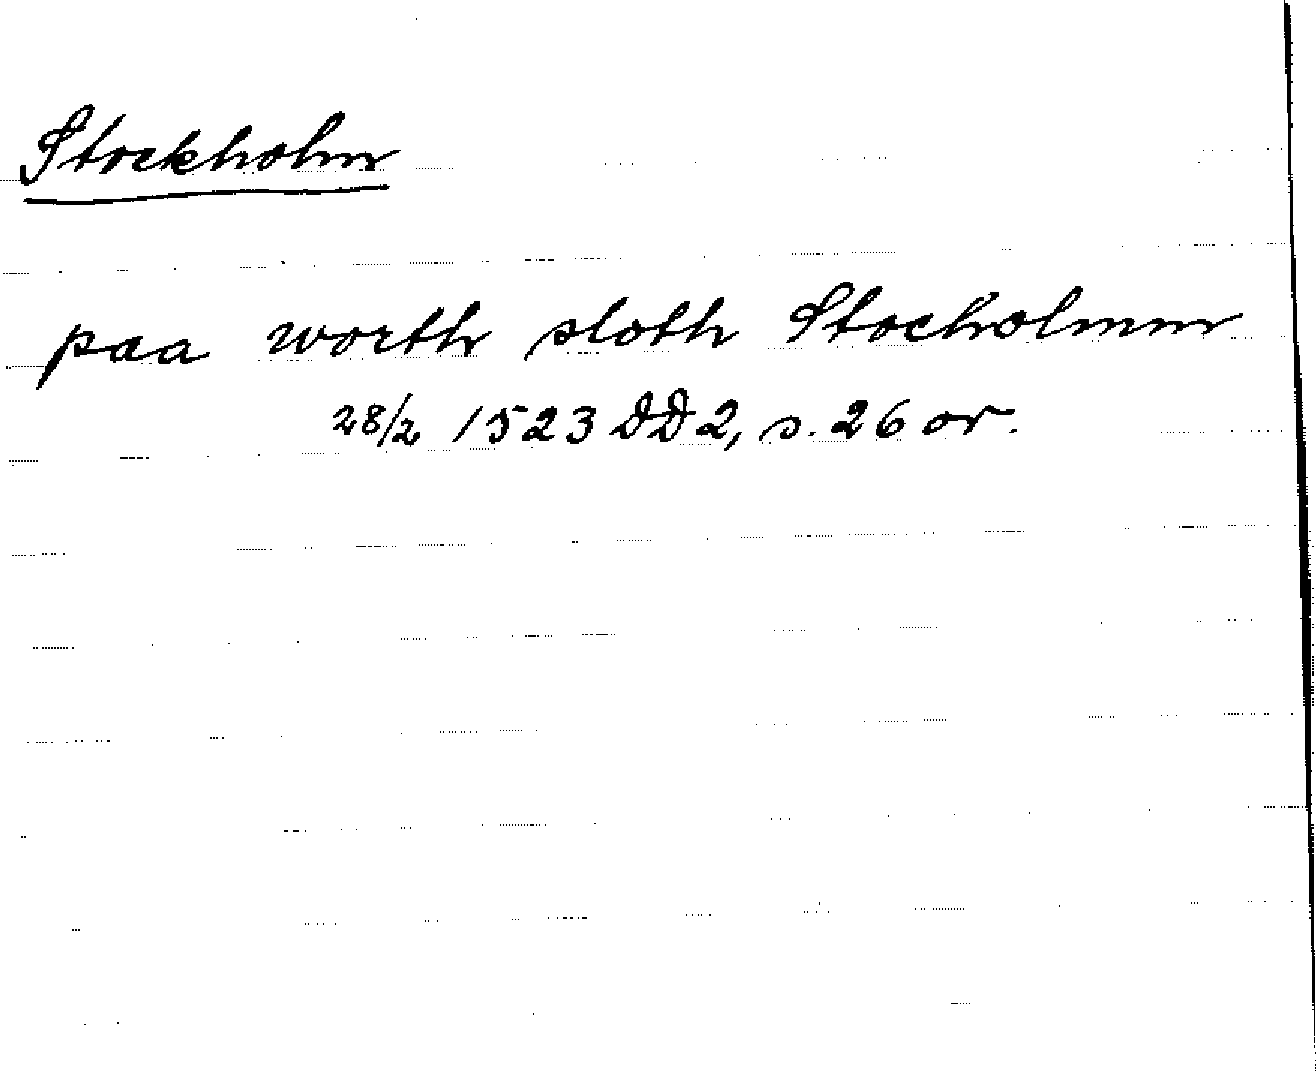 Stockholm
paa worth sloth Stocholmm
28/2 1523 DD2, s. 26 or.